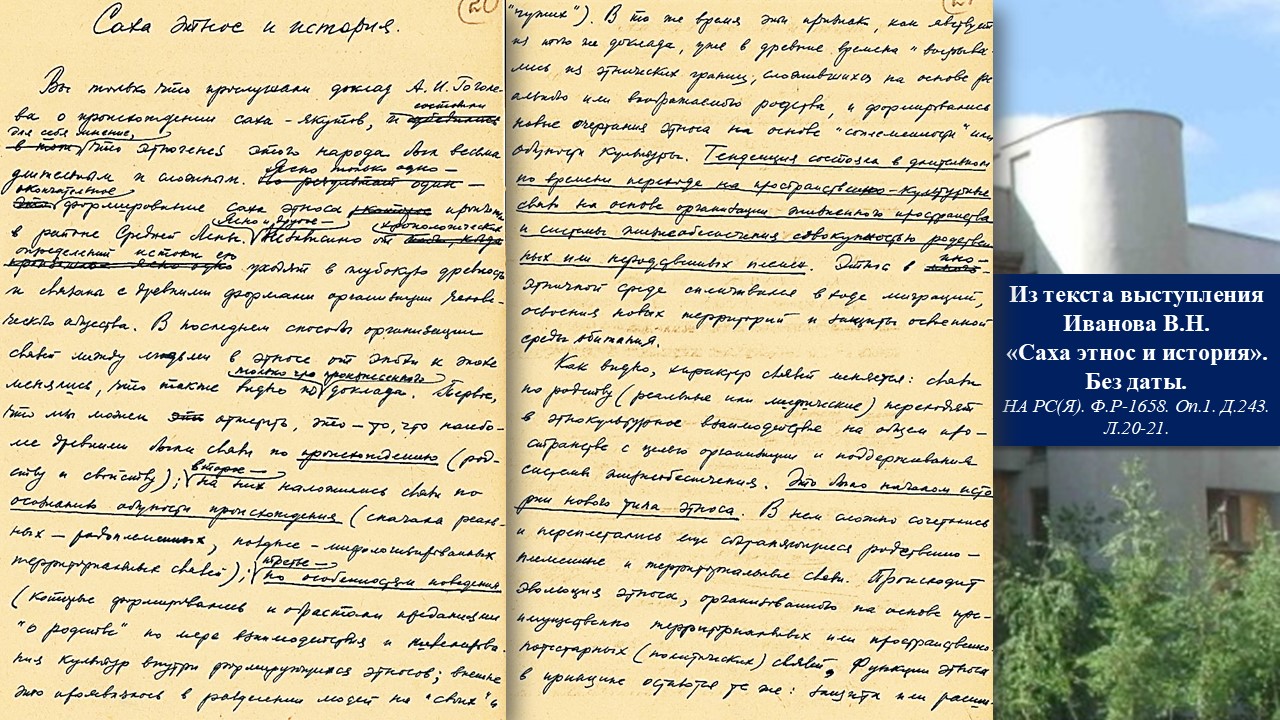 20
Саха этнос и история.
Вы только что прослушали доклад А.И. Гоголе-
ва о происхождении саха-якутов,
составили
для себя мнение,
что этногенез этого народа был весьма
длительным и сложным.
Ясно только одно –
окончательное
формирование саха этноса
в районе Средней Лены.
Ясно и другое –
Независимо от
хронологических
определений истоки его
уходят в глубокую древность
и связаны с древними формами организации челове-
ческого общества. В последнем способы организации
связей между людьми в этносе от эпохи к эпохе
менялись, что также видно из
только что прочитанного
доклада. Первое,
что мы можем
отметить, это – то, что наибо-
лее древними были связи по происхождению (род-
ству и свойству);
второе –
на них наложились связи по
осознанию общности происхождения (сначала реаль-
ных – родоплеменных, позднее – мифологизированных
территориальных связей);
третье –
по особенностям поведения
(которые формировались и обрастали преданиями
"о родстве" по мере взаимодействия и нивелирова-
ния культур внутри формирующихся этносов; внешне
это проявлялось в разделении людей на "своих" и
"чужих"). В то же время эти признаки, как явствует
из того же доклада, уже в древние времена "вырыва-
лись из этнических границ, сложившихся на основе ре-
ального или воображаемого родства, и формировались
новые очертания этноса на основе "соплеменности" или
общности культуры. Тенденция состояла в длительном
по времени переходе на пространственно-культурные
связи на основе организации жизненного пространства
и системы жизнеобеспечения совокупностью родствен-
ных или неродственных племен. Этнос в
ино-
этничной среде сплачивался в ходе миграций,
освоения новых территорий и защиты освоенной
среды обитания.
Как видно, характер связей меняется: связи
по родству (реальные или мифические) переходят
в этнокультурное взаимодействие на общем про-
странстве с целью организации и поддерживания
системы жизнеобеспечения. Это было началом исто-
рии нового типа этноса. В нем сложно сочетались
и переплетались еще сохраняющиеся родственно-
племенные и территориальные связи. Происходит
эволюция этноса, организованного на основе пре-
имущественно территориальных или пространственно-
потестарных (политических) связей. Функции этноса
в принципе остаются те же: защита или расши-
Из текста выступления
Иванова В.Н.
«Саха этнос и история».
Без даты.
НА РС(Я). Ф.Р-1658. Оп.1. Д.243.
Л.20-21.